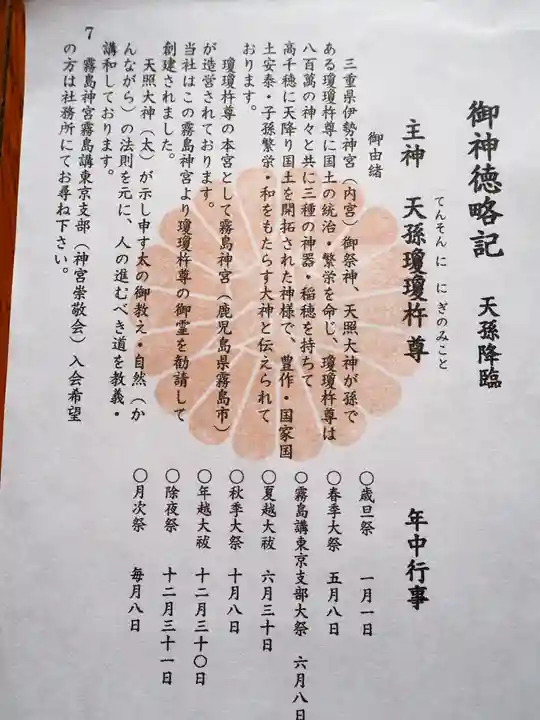 御神徳略記　天孫降臨
主神　天孫瓊瓊杵尊
てんそんににぎのみこと
御由緒
三重県伊勢神宮（内宮）御祭神、天照大神が孫で
ある瓊瓊杵尊に国土の統治・繁栄を命じ、瓊瓊杵尊は
八百萬の神々と共に三種の神器・稲穂を持ちて
高千穂に天降り国土を開拓された神様で、豊作・国家国
土安泰・子孫繁栄・和をもたらす大神と伝えられて
おります。
瓊瓊杵尊の本宮として霧島神宮（鹿児島県霧島市）
が造営されております。
当社はこの霧島神宮より瓊瓊杵尊の御霊を勧請して
創建されました。
天照大神（太）が示し申す太の御教え・自然（か
んながら）の法則を元に、人の進むべき道を教義・
講和しております。
霧島神宮霧島講東京支部（神宮崇敬会）入会希望
の方は社務所にてお尋ね下さい。
7
年中行事
〇歳旦祭　一月一日
〇春季大祭　五月八日
〇霧島講東京支部大祭　六月八日
〇夏越大祓　六月三十日
〇秋季大祭　十月八日
〇年越大祓　十二月三〇日
〇除夜祭　十二月三十一日
〇月次祭　毎月八日